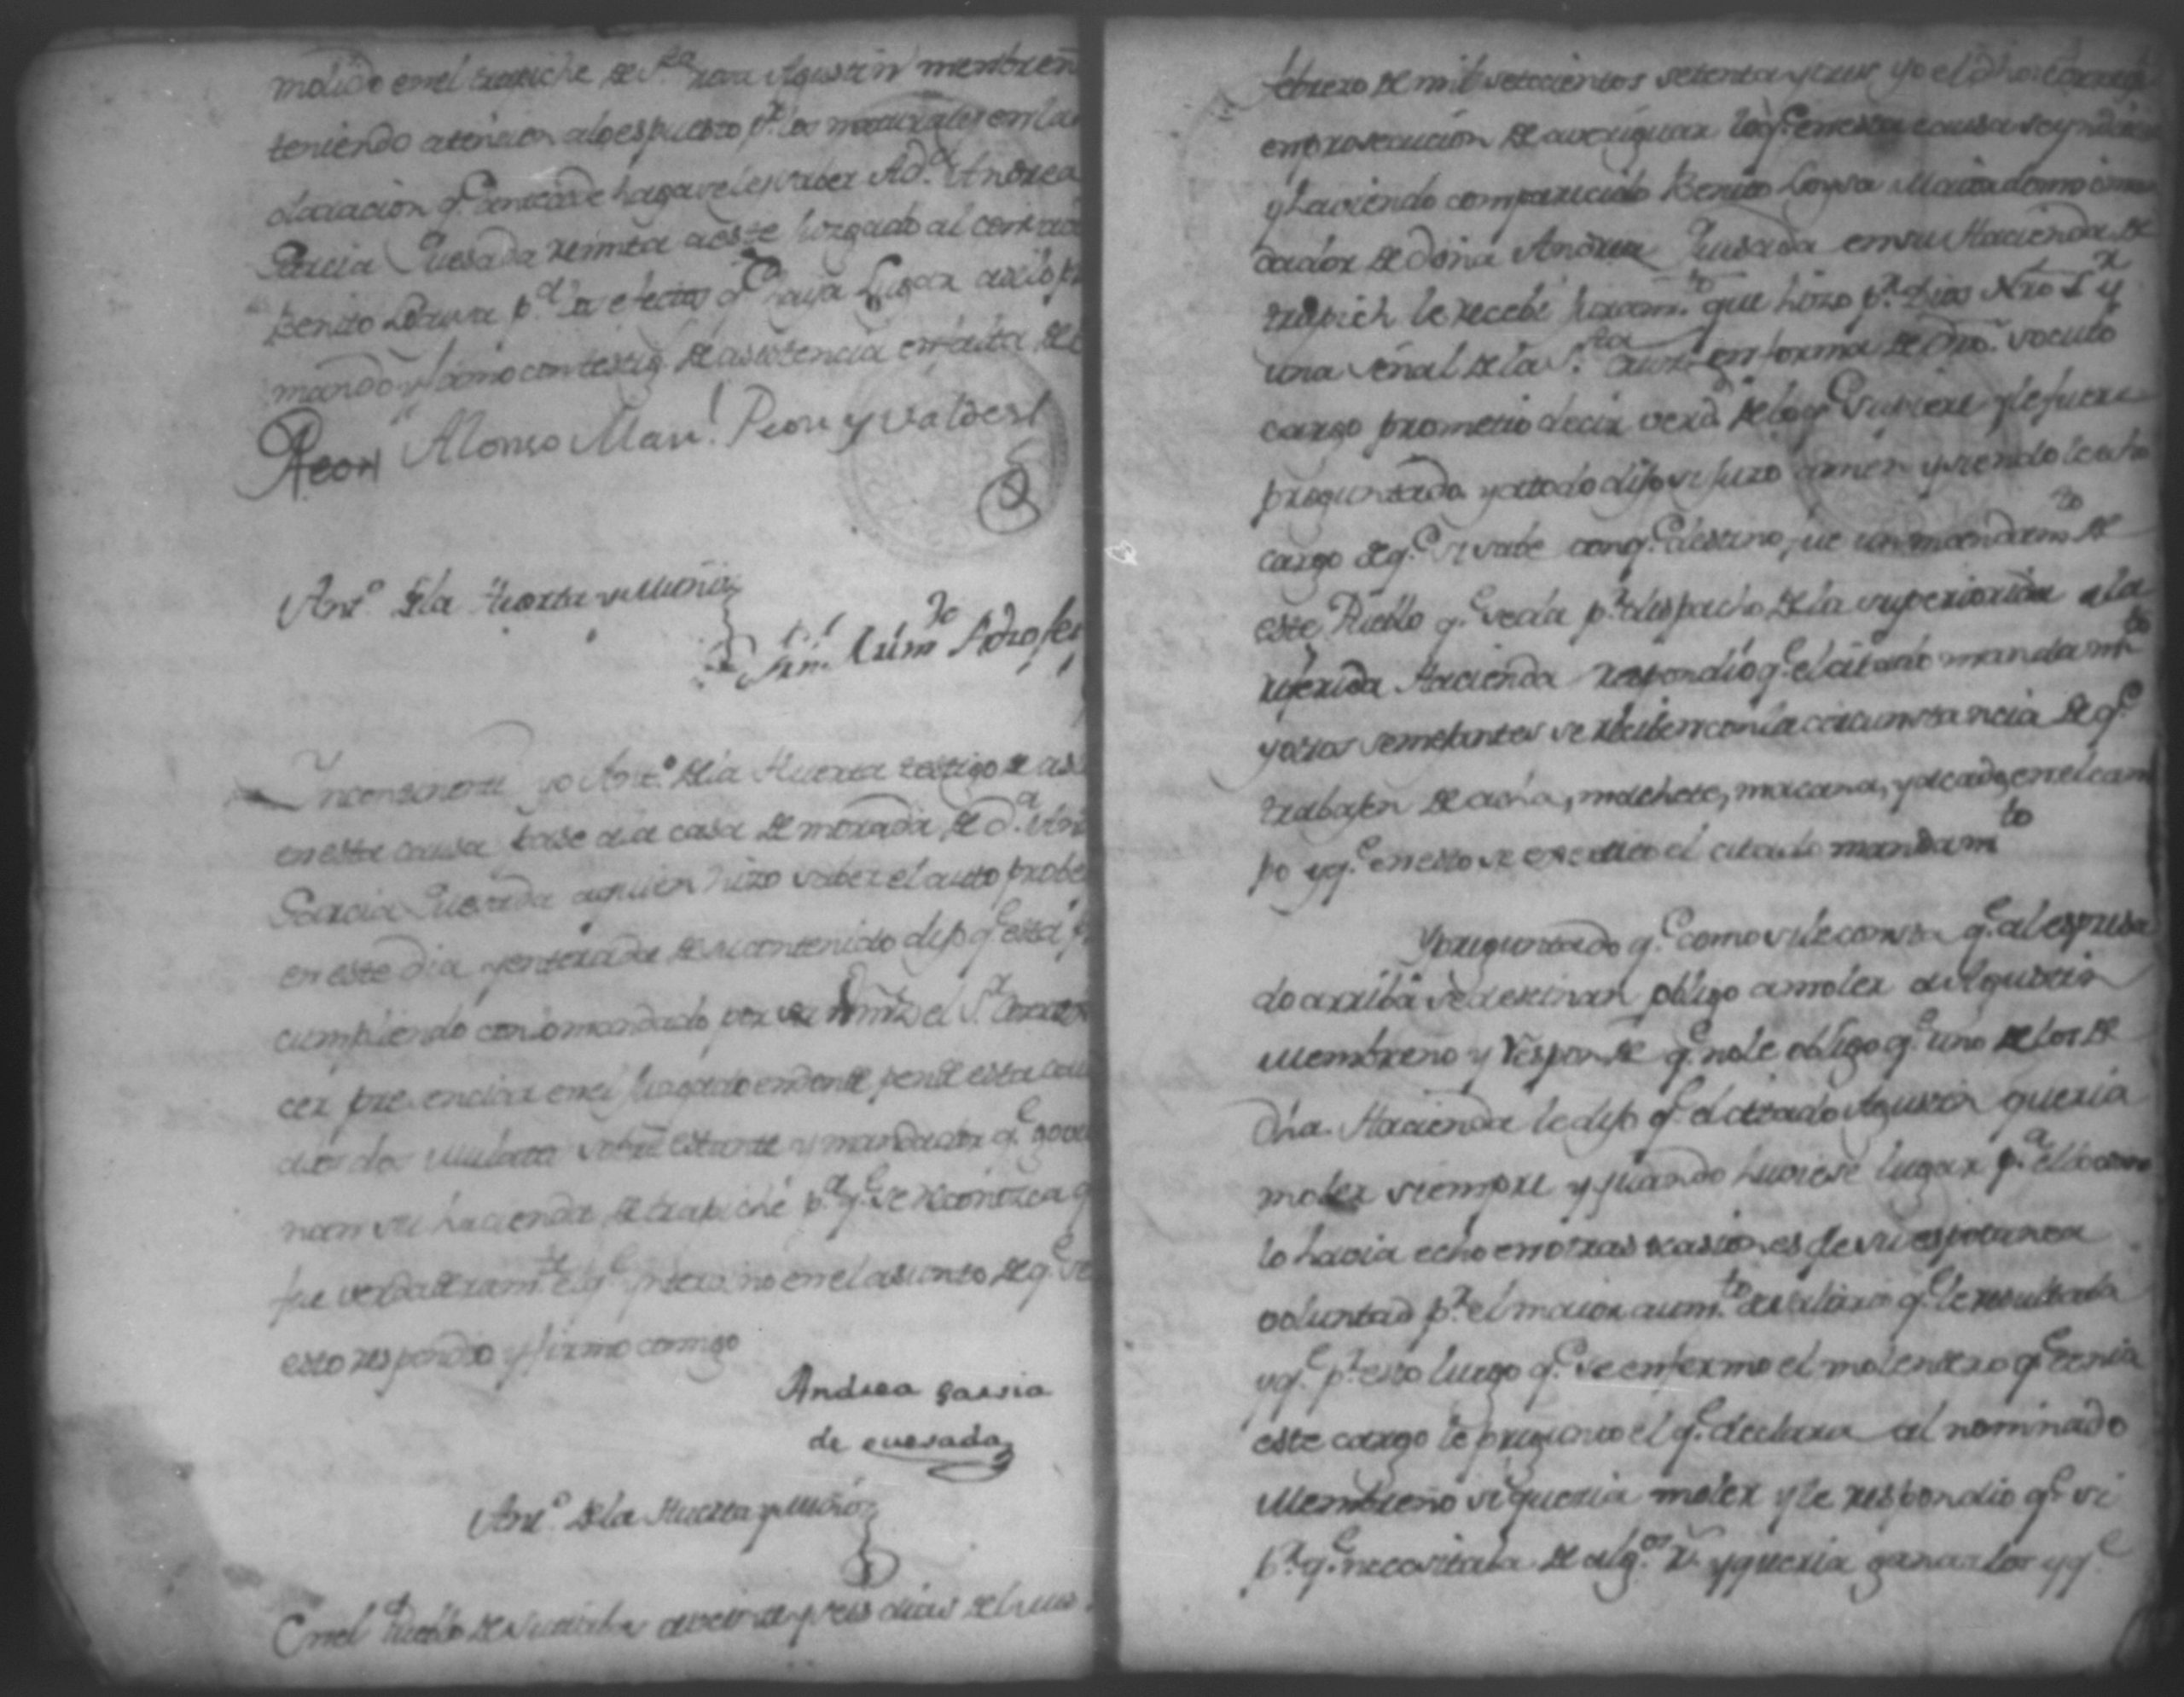 molido en el trapiche de S.ta rosa Agustin membreñ
teniendo atencion a lo espuesto p.r los naturales en la
claracion q.e antecede hagasele saber a D.a Andrea
Garcia Quesada remita a este Juzgado al
Benito p.a los efectos q.e haya Lugar asi lo pr
mando y firmo con testig.s de asistencia en falta de E
Peon Alonso Man.l Peon y Valdes
Ant.o de la Huerta y Muñoz
Incontinenti yo Ant.o de la Huerta testigo de as
en esta causa pase a la casa de morada de D.a And
Garcia Quesada a quien hizo saber el auto probe
en este dia y enterada de su contenido dijo q.e está p
cumpliendo con lo mandado por el S.r Correx
cer presenciar en el Juzgado en donde pende esta cau
a los dos mulatos sobre estante y mandador q.e gover
nan su hacienda de trapiche p.a q.e se reconozca q
fue verdaderam.te el q.e en el asunto de q.e se
esto respondio y firmo conmigo
Andrea garsia
de quesada
Ant.o de la Huerta y Muñoz
En el Pueblo de a veinte y seis dias del mes
febrero de mil setecientos setenta y tres yo el dho correxi
en prosecucion de averiguar lo q.e en esta causa se yndica
y haviendo comparecido Benito Maiordomo o man
dador de doña Andrea Quesada en su Hacienda de
trapich le recebi Juram.to que hizo p.r Dios Nro S.r y
una señal de la S.ta cruz en forma de dro. so culo
cargo prometio decir verd.d de lo q.e supiere y le fuere
preguntado y a todo dijo si juro amen y siendole echo
cargo de q.e si sabe con q.e destino fue un mandam.to de
este Pueblo q.e se da p.r despacho de la superioridad a la
referida Hacienda respondio q.e el citado mandam.to
y otros semejantes se reciben con la circunstancia de q.e
trabajen de acha, machete, macana, y arado, en el cam
po y q.e en esto se exercitó el citado mandam.to
Y preguntado q.e como si le consta q.e al espresa
do arriba se destinan obligo a moler a Agustin
Membreño y Responde q.e no le obligo q.e uno de los de
dha. Hacienda le dijo q.e el citado Agustin queria
moler siempre y quando huviese lugar p.a ello como
lo havia echo en otras ocasiones de su espotanea
voluntad p.r el maior aum.to de salario q.e le resultaba
y q.e p.r esto luego q.e se enfermo el molendero q.e tenia
este cargo le pregunto el q.e declara al nominado
Membreño si queria moler y le respondio q.e si
p.r q.e necesitaba de alg.os r.s y queria ganarlos y q.e